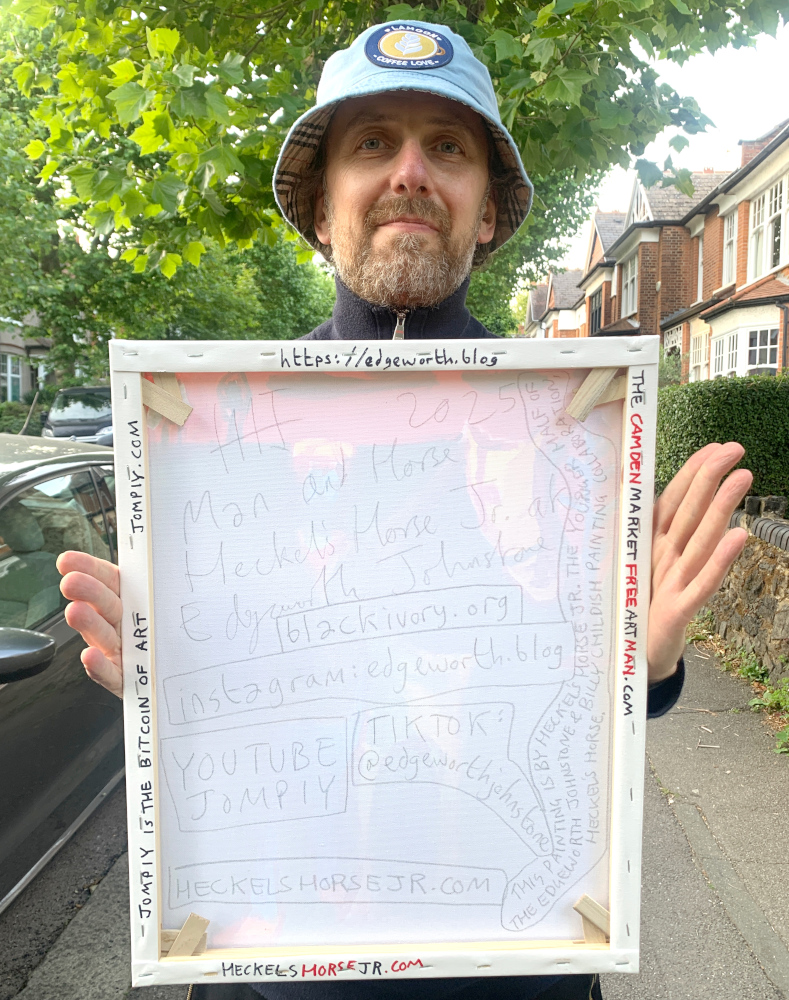 LAMOON
COFFEE LOVE
https://edgeworth.blog
JOMPIY.COM
JOMPIY IS THE BITCOIN OF ART
THE CAMDEN MARKET FREE ART MAN.COM
HI 2025
Man and Horse
Heckel's Horse Jr. an
Edgeworth Johnstone
blackivory.org
instagram:edgeworth.blog
YOUTUBE
JOMPIY
TIKTOK:
@edgeworthjohnstone
HECKELSHORSEJR.COM
THIS PAINTING IS BY HECKEL'S HORSE JR. THE YOUNGER HALF OF
THE EDGEWORTH JOHNSTONE & BILLY CHILDISH PAINTING COLLABORATION,
HECKEL'S HORSE.
HECKELSHORSEJR.COM